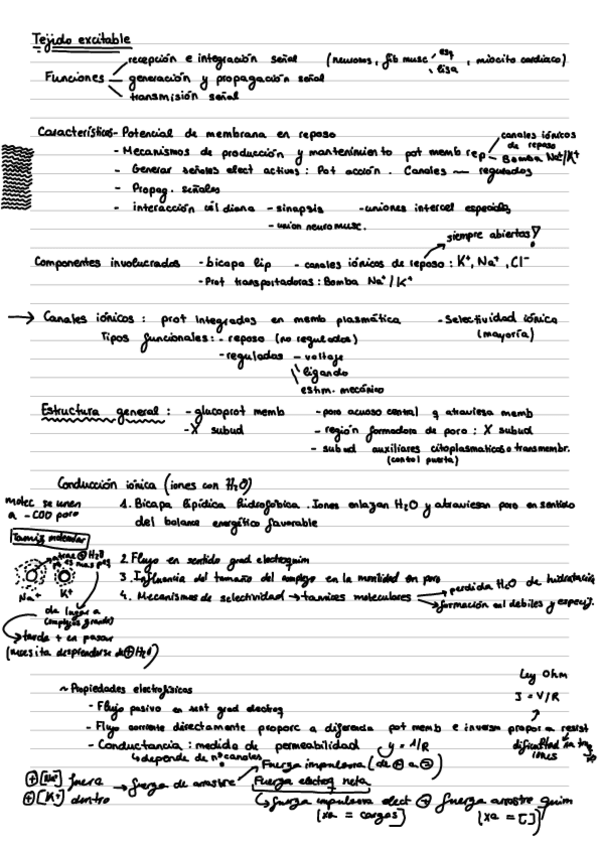 Tejido excitable
Funciones
recepción e integración señal (neuronas, fib musc esq, lisa, miocito cardiaco)
generación y propagación señal
transmisión señal
Características - Potencial de membrana en reposo
- Mecanismos de producción y mantenimiento pot memb rep
canales iónicos de reposo
Bomba Na+/K+
- Generar señales elect activas: Pot acción. Canales — regulados
- Propag. señales
- interacción cél diana - sinapsis - uniones intercel especiales
- union neuromusc.
siempre abiertos!
Componentes involucrados - bicapa lip - canales iónicos de reposo: K+, Na+, Cl-
- Prot transportadoras: Bomba Na+/K+
→ Canales iónicos: prot integradas en memb plasmática - Selectividad iónica
(mayoría)
Tipos funcionales: - reposo (no regulados)
- regulados - voltaje
ligando
estim. mecánico
Estructura general: - glucoprot memb - poro acuoso central q atraviesa memb
- X subud - región formadora de poro: X subud
- subud auxiliares citoplasmaticas o transmembr.
(control puerta)
Conducción iónica (iones con H2O)
molec se unen
a -COO poro
1. Bicapa lipídica hidrofóbica. Iones enlazan H2O y atraviesan poro en sentido
del balance energético favorable
Tamiz molecular
2. Flujo en sentido grad electroquim
3. Influencia del tamaño del complejo en la movilidad en poro
4. Mecanismos de selectividad → tamices moleculares
perdida H2O de hidratación
formación enl débiles y especif.
atrae ⊕ H2O
Na+ K+
da lugar a
complejos grandes
tarda + en pasar
(necesita desprenderse de ⊕ H2O)
~ Propiedades electrofísicas
- Flujo pasivo en sent grad electroq
- Flujo corriente directamente proporc a diferencia pot memb e invers propor a resist
- Conductancia: medida de permeabilidad γ = 1/R
↳ depende de nº canales
Ley Ohm
I = V/R
dificultad
iones
⊕ [Na+] fuera
⊕ [K+] dentro
→ fuerza de arrastre
Fuerza impulsora (de ⊕ a ⊖)
Fuerza electroq neta
↳ fuerza impulsora elect ⊕ fuerza arrastre quim
(xa = cargas) (xa = [ ])